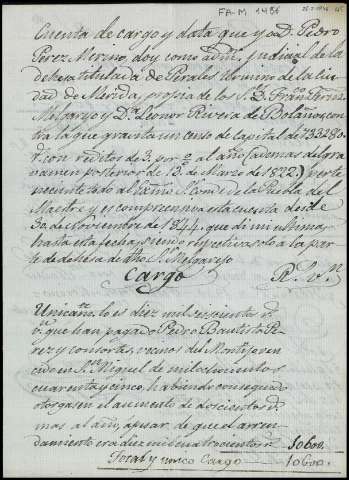 FA-M. 1486
Cuenta de cargo y data que yo D. Pedro
Perez Merino, doy como adm.ʳ judicial de la
dehesa titulada de Perales termino de la Ciu-
dad de Merida, propia de los S.ˢ D. Fran.ᶜᵒ Fern.ᶻ
Melgarejo y D.ª Leonor Rivera de Bolaños, con-
tra la que gravita un censo de capital de 733280
r.ˢ con reditos de 3 por % al año (ademas del gra-
vamen posterior de 13 de Marzo de 1822) perte-
neciente al S.ʳ Conde de la Puebla del
Maestre y es comprensiva esta cuenta desde
30 de Noviembre de 1844, que di mi ultima,
hasta esta fecha, siendo respectiva solo a la par-
te de dehesa de dho S.ʳ Melgarejo
Cargo R.ˢ v.ⁿ
Unicam.ᵗᵉ lo es diez mil seiscientos r.ˢ
v.ⁿ que han pagado Pedro Bautista Pe-
rez y consortes, vecinos del Montijo ven-
cido en S.ⁿ Miguel de mil ochocientos
cuarenta y cinco, habiendo conseguido
otorgasen el aumento de doscientos r.ˢ
mas al año, apesar de que el arren-
damiento era diez mil cuatrocientos r.ˢ 10600.
Total y unico Cargo 10600.